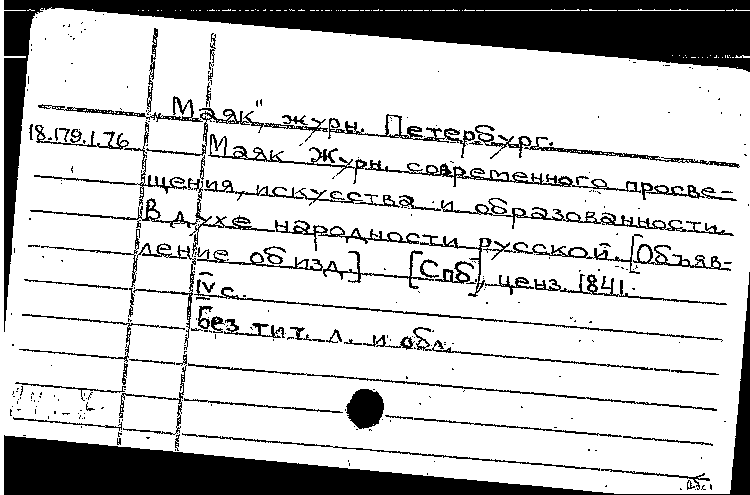 „Маяк", журн. Петербург.
18.179.1.76 Маяк журн. современного просве-
щения, искусства и образованности.
В духе народности русской. [Объяв-
ление об изд.] [Спб], ценз. 1841.
IV с.
Без тит. л. и обл.